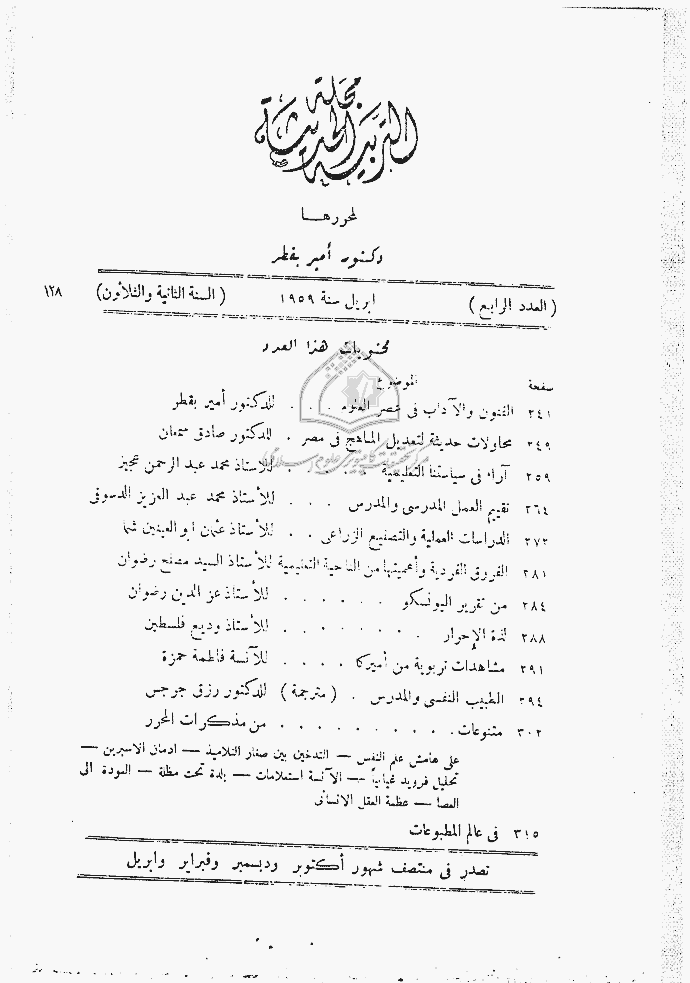 مجلة
التربية الحديثة
لمحررها
دكتور أمير بقطر
( العدد الرابع ) ابريل سنة ١٩٥٩ ( السنة الثانية والثلاثون ) ١٢٨
محتويات هذا العدد
صفحة الموضوع
٢٤١ الفنون والآداب فى عصر العلوم . . . . للدكتور أمير بقطر
٢٤٩ محاولات حديثة لتعديل المناهج فى مصر . للدكتور صادق سمعان
٢٥٩ آراء فى سياستنا التعليمية . . . للأستاذ محمد عبد الرحمن
٢٦٤ تقييم العمل المدرسى والمدرس . . . للأستاذ محمد عبد العزيز الدسوقى
٢٧٣ الدراسات العملية والتصنيع الزراعى . . للأستاذ عثمان ابو العينين
٢٨١ الفروق الفردية وأهميتها من الناحية التعليمية للأستاذ السيد مصلح رضوان
٢٨٤ من تقرير اليونسكو . . . . . . للأستاذ عز الدين رضوان
٢٨٨ لذة الإحرار . . . . . . . . للأستاذ وديع فلسطين
٢٩١ مشاهدات تربوية من أميركا . . . . للآنسة فاطمة حمزة
٢٩٤ الطبيب النفسى والمدرس . ( مترجمة ) للدكتور رزق جرجس
٣٠٢ متنوعات . . . . . . . . . . من مذكرات المحرر
على هامش علم النفس — التدخين بين صغار التلاميذ — ادمان الاسبرين —
تحليل فرويد غيابياً — الآنسة استعلامات — بلدة تحت مظلة — العودة الى
العصا — عظمة العقل الانسانى
٣١٥ فى عالم المطبوعات
تصدر فى منتصف شهور أكتوبر وديسمبر وفبراير وابريل